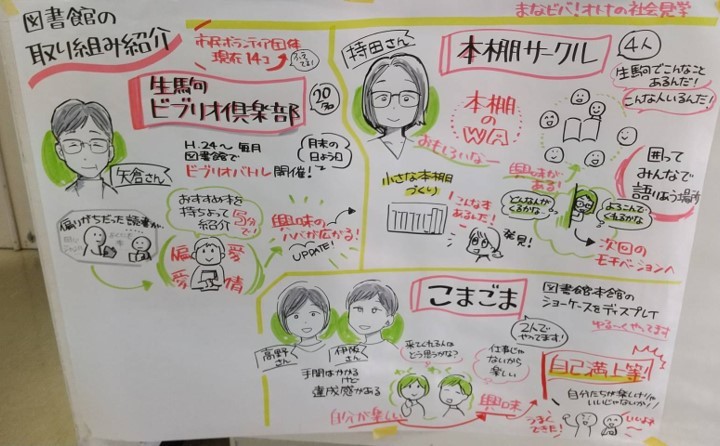 まなビバ!オトナの社会見学
図書館の
取り組み紹介
市民ボランティア団体
現在14コ
生駒
ビブリオ倶楽部
20名
矢倉さん
H.24〜毎月
図書館で
ビブリオバトル開催!
月末の
日よう日
偏りがちだった読書が…
おすすめ本を
持ちよって
紹介
5分で!
偏愛
愛情
興味の
ハバが広がる!
UPDATE!
持田さん
本棚サークル
4人
本棚
の
WA
おもしろいなー
小さな本棚
づくり
こんな本
あるんだ!
発見!
生駒でこんなこと
あるんだ!
こんな人いるんだ!
囲って
みんなで
語りあう場所
興味が
ある!
どんな人が
くるかな
よろこんで
くれるかな
次回の
モチベーションへ
こまごま
図書館本館の
ショーケースをディスプレイ
ゆる〜くやってます
2人で
やってます!
高野さん
伊阪さん
手間はかかる
けど
達成感がある
来てくれる人は
どう思うかな?
仕事じゃ
ないから
楽しい
自分が楽しい
興味
自己満上等!
自分たちが楽しけりゃ
いいじゃないか!
うまく
できた!
いいよねー